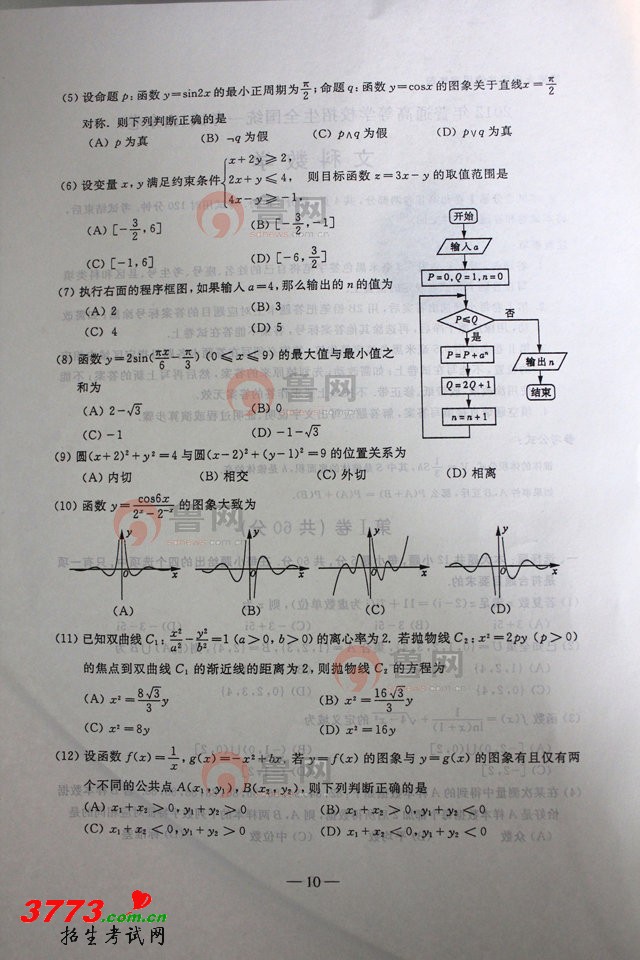 (5) 设命题 p:函数 y=sin2x 的最小正周期为π/2;命题 q:函数 y=cosx 的图象关于直线x=π/2
对称.则下列判断正确的是
(A) p 为真 (B) ¬q 为假 (C) p∧q 为假 (D) p∨q 为真
(6) 设变量 x,y 满足约束条件{x+2y≥2, 2x+y≤4, 4x-y≥-1, 则目标函数 z=3x-y 的取值范围是
(A) [-3/2,6] (B) [-3/2,-1]
(C) [-1,6] (D) [-6,3/2]
(7) 执行右面的程序框图,如果输入 a=4,那么输出的 n 的值为
(A) 2 (B) 3
(C) 4 (D) 5
开始
输入a
P=0,Q=1,n=0
P≤Q 否
是
P=P+aⁿ 输出n
Q=2Q+1 结束
n=n+1
(8) 函数 y=2sin(πx/6-π/3) (0≤x≤9) 的最大值与最小值之
和为
(A) 2-√3 (B) 0
(C) -1 (D) -1-√3
(9) 圆(x+2)²+y²=4 与圆(x-2)²+(y-1)²=9 的位置关系为
(A) 内切 (B) 相交 (C) 外切 (D) 相离
(10) 函数 y=cos6x/(2ˣ-2⁻ˣ) 的图象大致为
y y y y
O x O x O x O x
(A) (B) (C) (D)
(11) 已知双曲线 C₁:x²/a²-y²/b²=1 (a>0,b>0) 的离心率为 2. 若抛物线 C₂:x²=2py (p>0)
的焦点到双曲线 C₁ 的渐近线的距离为 2,则抛物线 C₂ 的方程为
(A) x²=8√3/3y (B) x²=16√3/3y
(C) x²=8y (D) x²=16y
(12) 设函数 f(x)=1/x,g(x)=-x²+bx. 若 y=f(x) 的图象与 y=g(x) 的图象有且仅有两
个不同的公共点 A(x₁,y₁),B(x₂,y₂),则下列判断正确的是
(A) x₁+x₂>0,y₁+y₂>0 (B) x₁+x₂>0,y₁+y₂<0
(C) x₁+x₂<0,y₁+y₂>0 (D) x₁+x₂<0,y₁+y₂<0
— 10 —
3773.com.cn
招生考试网
鲁网